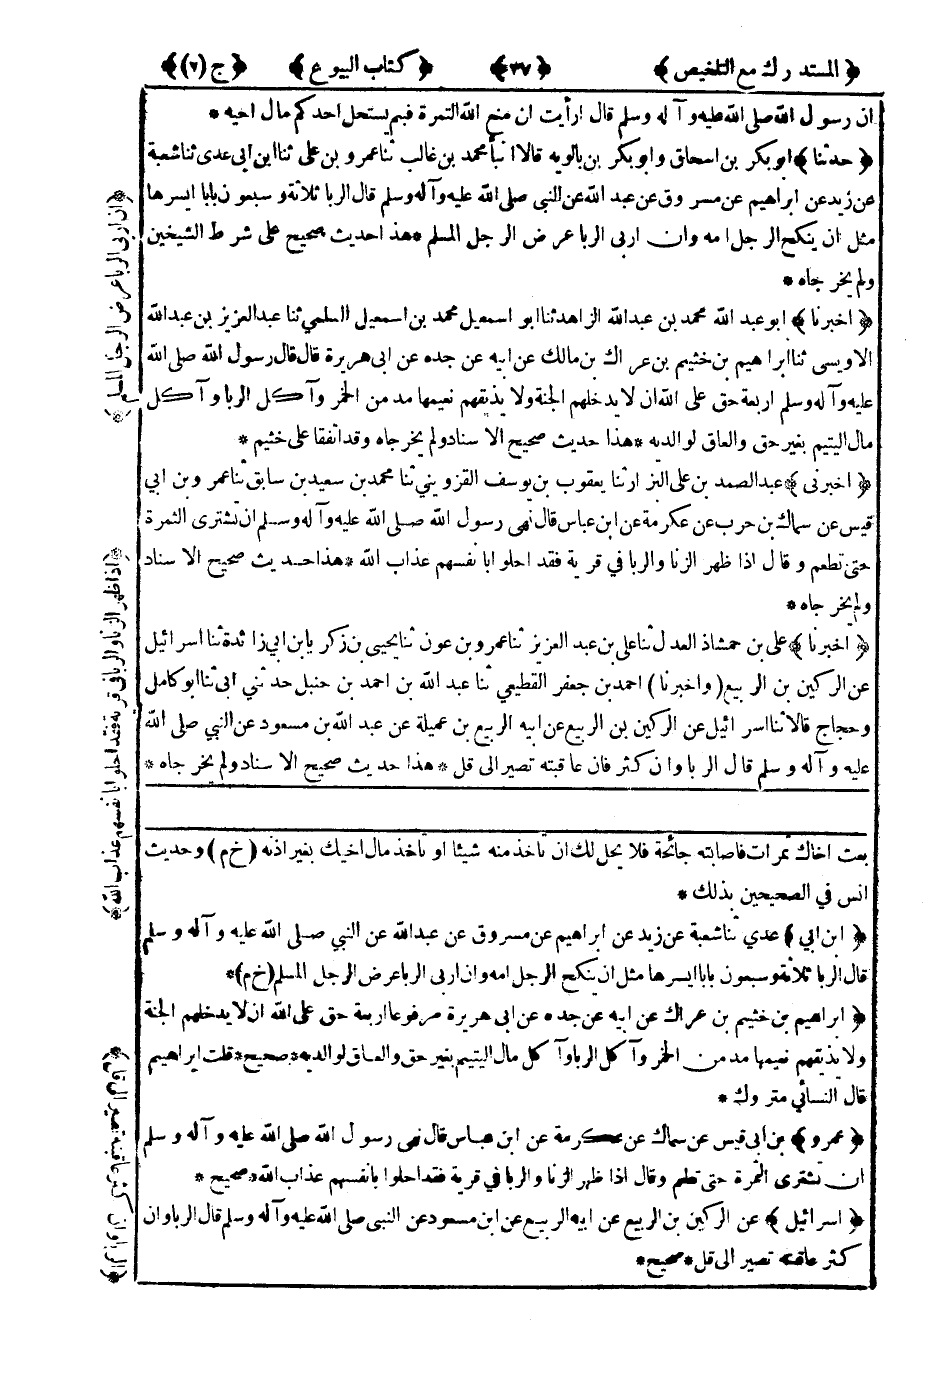 ﴿ المستدرك مع التلخيص ﴾ ﴿ ٣٧ ﴾ ﴿ كتاب البيوع ﴾ ﴿ ج (٢) ﴾
ان رسول الله صلى الله عليه وآله وسلم قال ارأيت ان منع الله الثمرة فبم يستحل احدكم مال اخيه *
﴿ حدثنا ﴾ ابو بكر بن اسحاق وابو بكر بن بالويه قالا انبأ محمد بن غالب ثنا عمرو بن على ثنا ابن ابى عدى ثنا شعبة
عن زيد عن ابراهيم عن مسروق عن عبد الله عن النبى صلى الله عليه وآله وسلم قال الربا ثلاثة وسبعون بابا ايسرها
مثل ان ينكح الرجل امه وان اربى الربا عرض الرجل المسلم * هذا حديث صحيح على شرط الشيخين
ولم يخرجاه *
﴿ اخبرنا ﴾ ابو عبد الله محمد بن عبدالله الزاهد ثنا ابو اسمعيل محمد بن اسمعيل السلمي ثنا عبدالعزيز بن عبدالله
الاويسى ثنا ابراهيم بن خثيم بن عراك بن مالك عن ابيه عن جده عن ابى هريرة قال قال رسول الله صلى الله
عليه وآله وسلم اربعة حق على الله ان لا يدخلهم الجنة ولا يذيقهم نعيمها مدمن الخمر وآكل الربا وآكل
مال اليتيم بغير حق والعاق لوالديه * هذا حديث صحيح الاسناد ولم يخرجاه وقد اتفقا على خثيم *
﴿ اخبرنى ﴾ عبدالصمد بن على البزار ثنا يعقوب بن يوسف القزويني ثنا محمد بن سعيد بن سابق ثنا عمرو بن ابي
قيس عن سماك بن حرب عن عكرمة عن ابن عباس قال نهى رسول الله صلى الله عليه وآله وسلم ان تشترى الثمرة
حتى تطعم وقال اذا ظهر الزنا والربا في قرية فقد احلوا بانفسهم عذاب الله * هذا حديث صحيح الاسناد
ولم يخرجاه *
﴿ اخبرنا ﴾ على بن حمشاذ العدل ثنا على بن عبد العزيز ثنا عمرو بن عون ثنا يحيى بن زكريا بن ابي زائدة ثنا اسرائيل
عن الركين بن الربيع (واخبرنا) احمد بن جعفر القطيعي ثنا عبد الله بن احمد بن حنبل حدثني ابى ثنا ابو كامل
وحجاج قالا ثنا اسرائيل عن الركين بن الربيع عن ابيه الربيع بن عميلة عن عبد الله بن مسعود عن النبي صلى الله
عليه وآله وسلم قال الربا وان كثر فان عاقبته تصير الى قل * هذا حديث صحيح الاسناد ولم يخرجاه *
بعت اخاك ثمرات فاصابته جائحة فلا يحل لك ان تاخذ منه شيئا او تاخذ مال اخيك بغير اذنه (خ م) وحديث
انس في الصحيحين بذلك *
﴿ ابن ابي ﴾ عدي ثنا شعبة عن زيد عن ابراهيم عن مسروق عن عبدالله عن النبي صلى الله عليه وآله وسلم
قال الربا ثلاثة وسبعون بابا ايسرها مثل ان ينكح الرجل امه وان اربى الربا عرض الرجل المسلم (خ م) *
﴿ ابراهيم بن خثيم بن عراك عن ابيه عن جده عن ابى هريرة مرفوعا اربعة حق على الله ان لا يدخلهم الجنة
ولا يذيقهم نعيمها مدمن الخمر وآكل الربا وآكل مال اليتيم بغير حق والعاق لوالديه * صحيح * قلت ابراهيم
قال النسائي متروك *
﴿ عمرو ﴾ بن ابى قيس عن سماك عن عكرمة عن ابن عباس قال نهى رسول الله صلى الله عليه وآله وسلم
ان تشترى الثمرة حتى تطعم وقال اذا ظهر الزنا والربا في قرية فقد احلوا بانفسهم عذاب الله * صحيح *
﴿ اسرائيل ﴾ عن الركين بن الربيع عن ابيه الربيع عن ابن مسعود عن النبى صلى الله عليه وآله وسلم قال الربا وان
كثر عاقبته تصير الى قل * صحيح *
﴿ ان اربى الربا عرض الرجل المسلم ﴾
﴿ اذا ظهر الزنا والربا في قرية فقد احلوا بانفسهم عذاب الله ﴾
﴿ الربا وان كثر عاقبته تصير الى قل ﴾